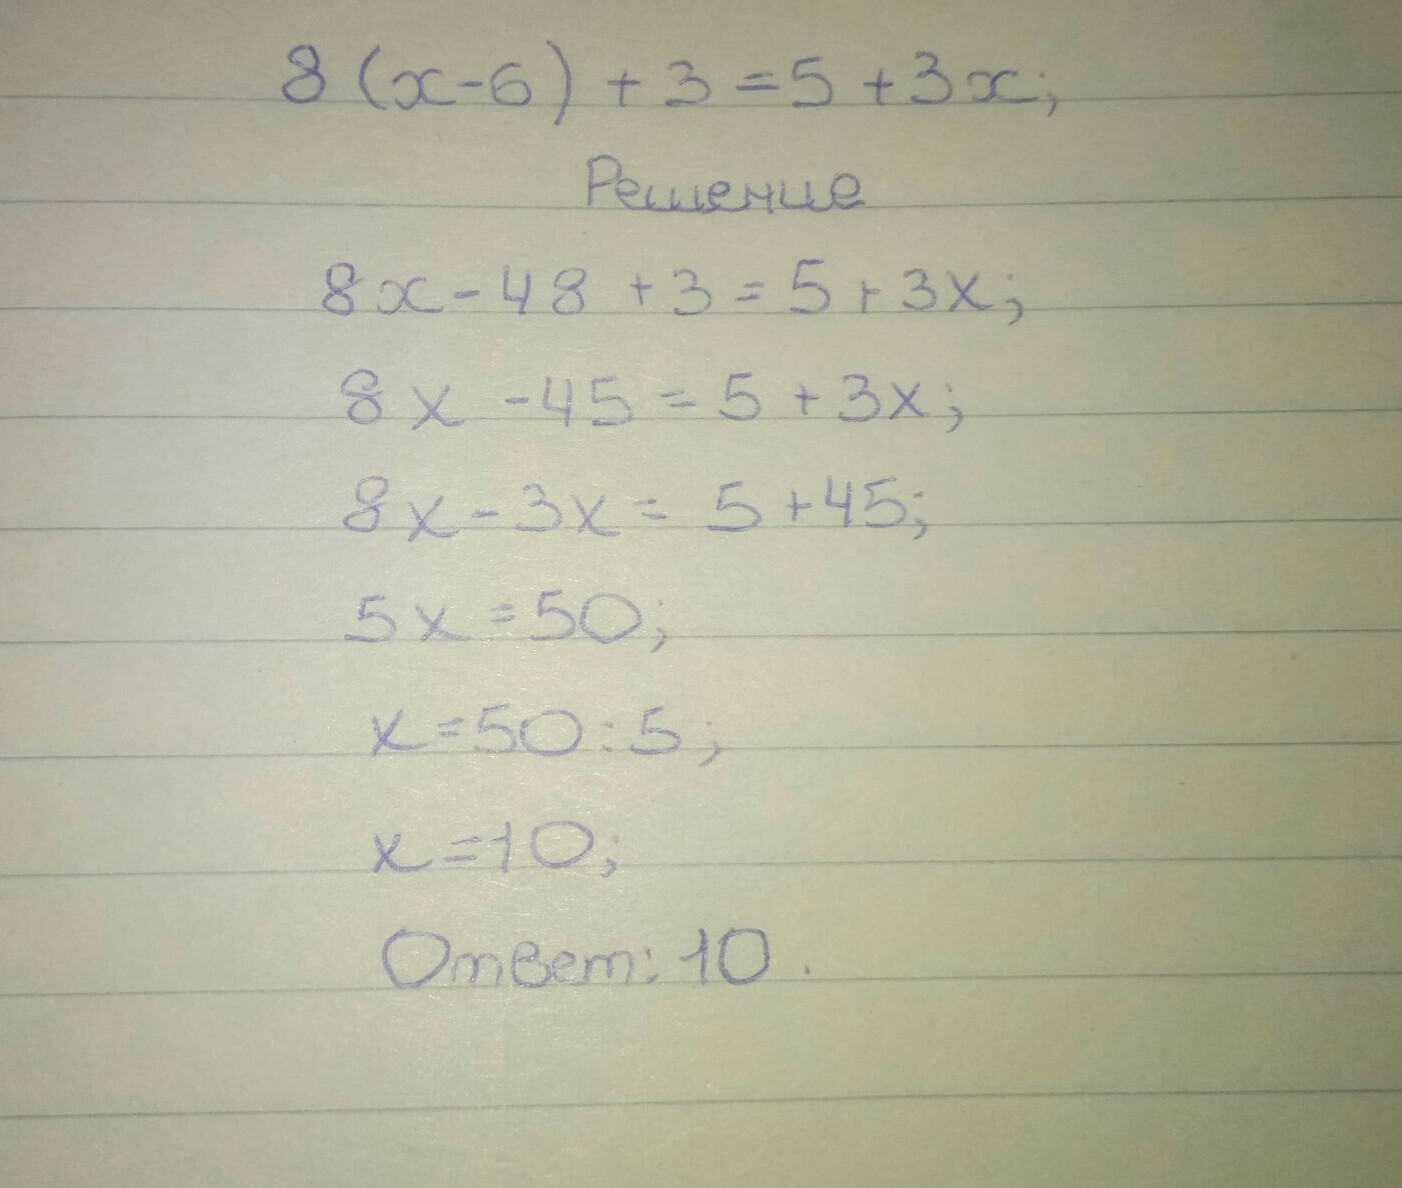 8(x-6)+3=5+3x;
Решение
8x-48+3=5+3x;
8x-45=5+3x;
8x-3x=5+45;
5x=50;
x=50:5;
x=10;
Ответ: 10.